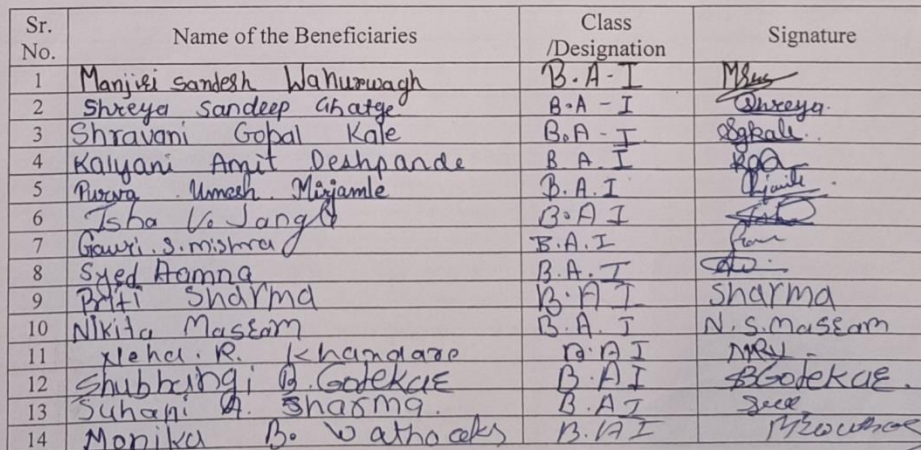 Sr. No. Name of the Beneficiaries Class /Designation Signature
1 Manjiri Sandesh Wahurwagh B.A-I
2 Shreya Sandeep Ghatge B.A-I Shreya.
3 Shravani Gopal Kale B.A-I Sgkale.
4 Kalyani Amit Deshpande B.A.I
5 Purva Umesh Mirjamle B.A.I
6 Isha V. Jangl B.A I
7 Gauri.S.mishra B.A.I
8 Syed Aamna B.A.I
9 Priti Sharma B.A I Sharma
10 Nikita Maseam B.A. I N.S.Maseam
11 Neha.R. Khandare B.A I
12 Shubhangi B.Gotekae B.A I SBGotekae.
13 Suhani A. Sharma. B.A I
14 Monika B. B.A I